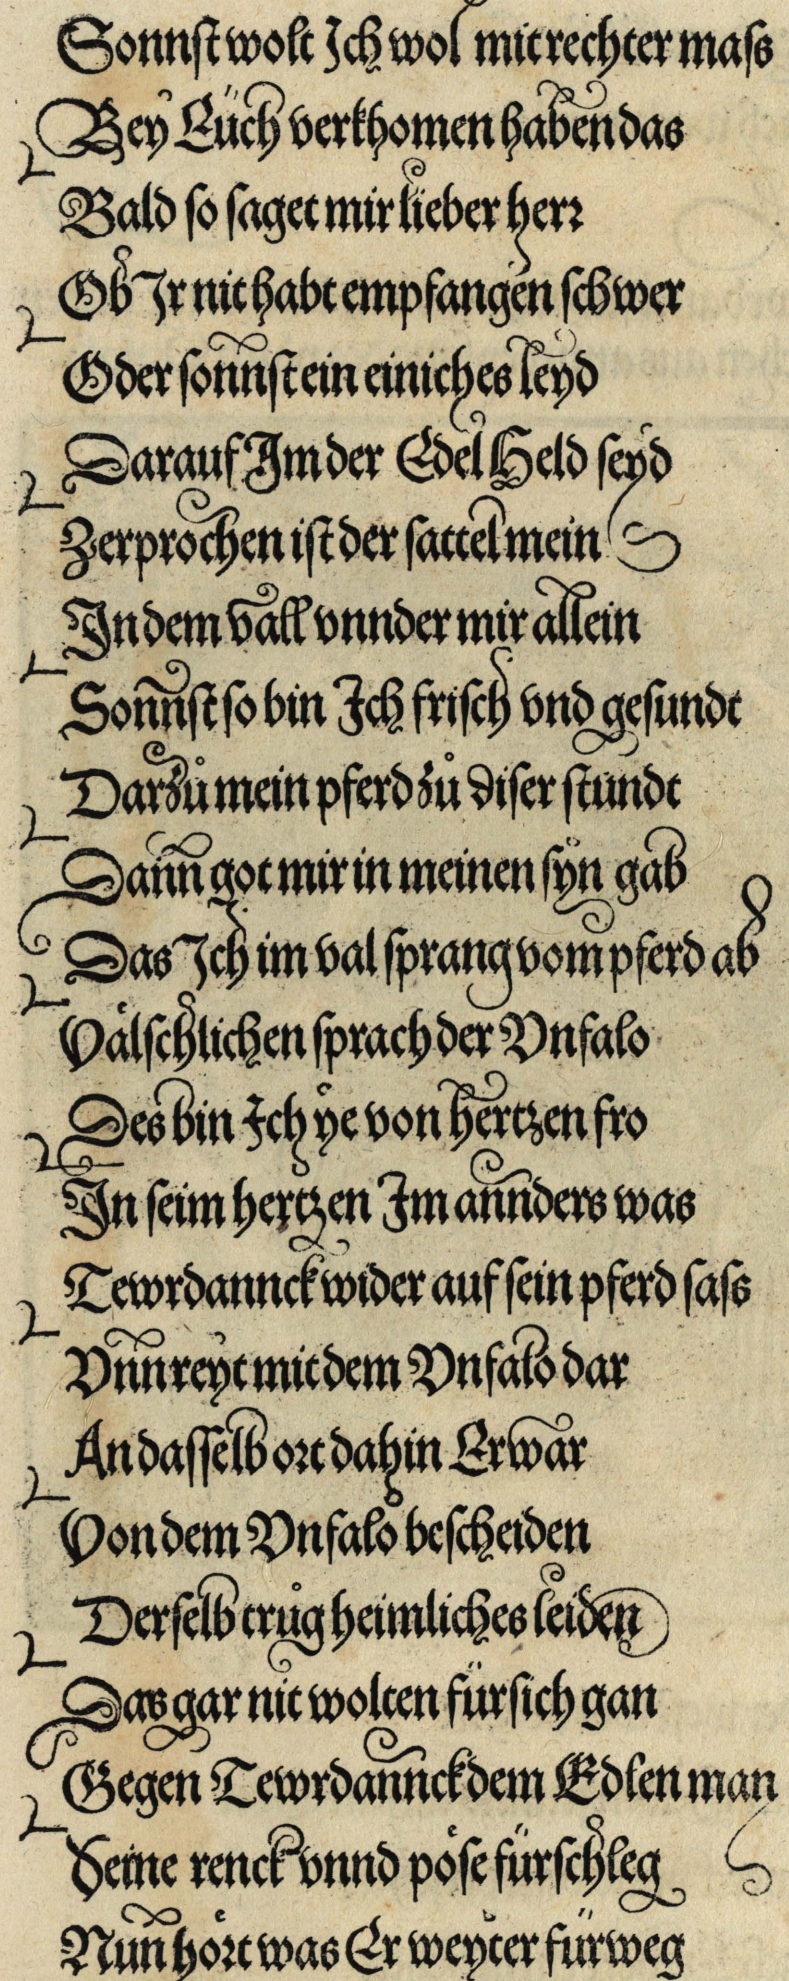 Sonnst wolt Ich wol mit rechter mass
Bey Euch verkhomen haben das
Bald so saget mir lieber herr
Ob Ir nit habt empfangen schwer
Oder sonnst ein einiches leyd
Darauf Im der Edel Held seyd
Zerprochen ist der sattel mein
In dem vall vnnder mir allein
Sonnst so bin Ich frisch vnd gesundt
Darzů mein pferd zů diser stundt
Dann got mir in meinen syn gab
Das Ich im val sprang vom pferd ab
Välschlichen sprach der Vnfalo
Des bin Ich ye von hertzen fro
In seim hertzen Im annders was
Tewrdannck wider auf sein pferd sass
Vnn reyt mit dem Vnfalo dar
An dasselb ort dahin Er war
Von dem Vnfalo bescheiden
Derselb trůg heimliches leiden
Das gar nit wolten für sich gan
Gegen Tewrdannck dem Edlen man
Seine renck vnnd pöse fürschleg
Nun hört was Er weyter fürweg